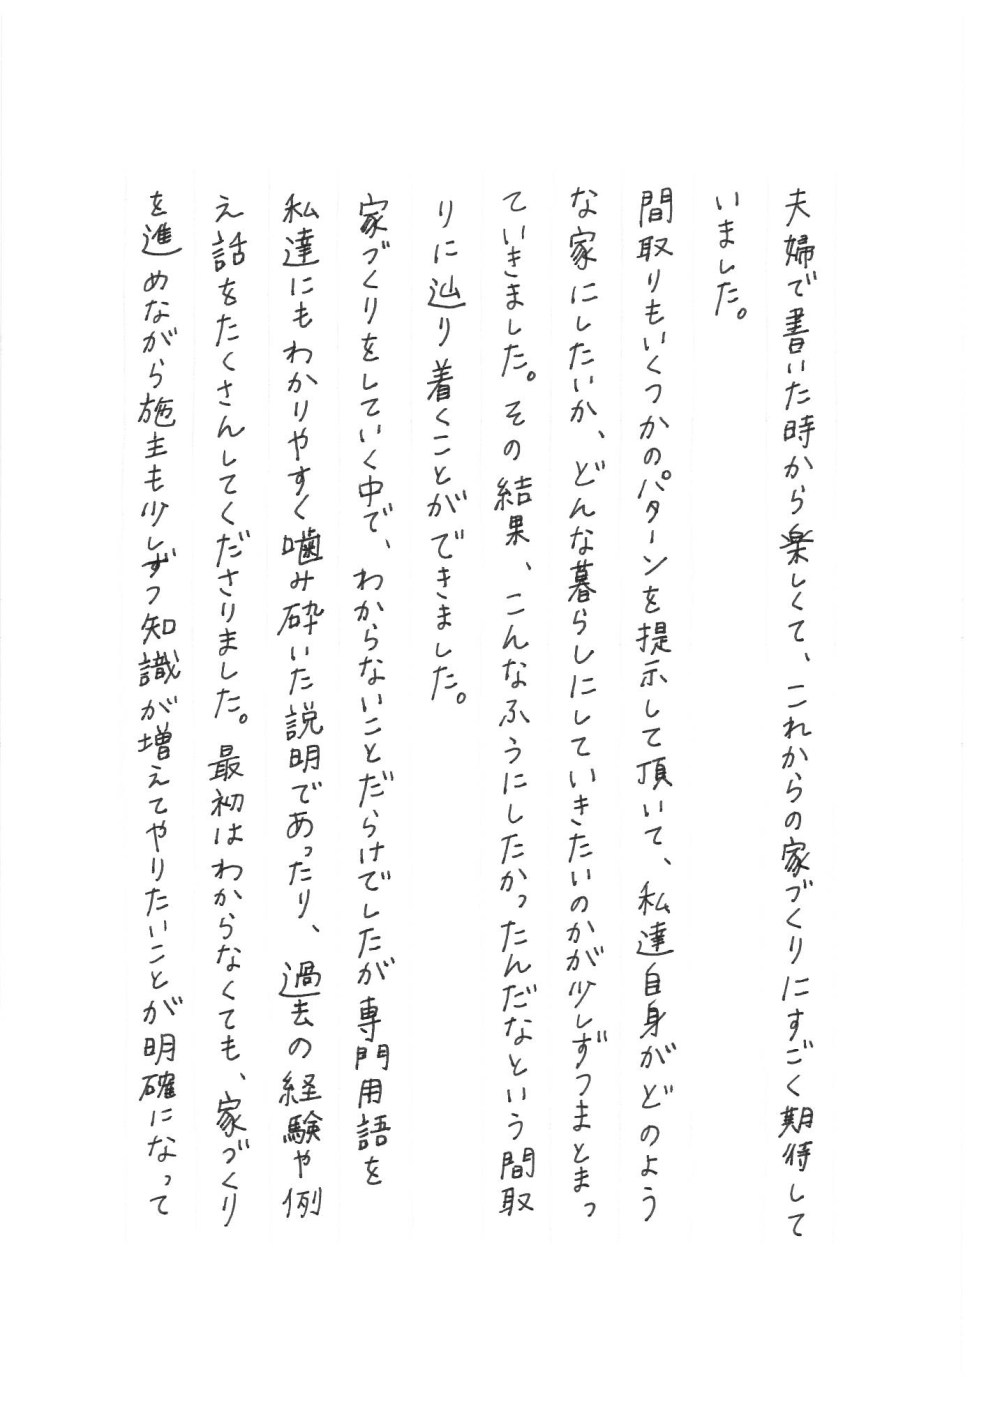 夫婦で書いた時から楽しくて、これからの家づくりにすごく期待して
いました。
間取りもいくつかのパターンを提示して頂いて、私達自身がどのよう
な家にしたいか、どんな暮らしにしていきたいのかが少しずつまとまっ
ていきました。その結果、こんなふうにしたかったんだなという間取
りに辿り着くことができました。
家づくりをしていく中で、わからないことだらけでしたが専門用語を
私達にもわかりやすく噛み砕いた説明であったり、過去の経験や例
え話をたくさんしてくださりました。最初はわからなくても、家づくり
を進めながら施主も少しずつ知識が増えてやりたいことが明確になって